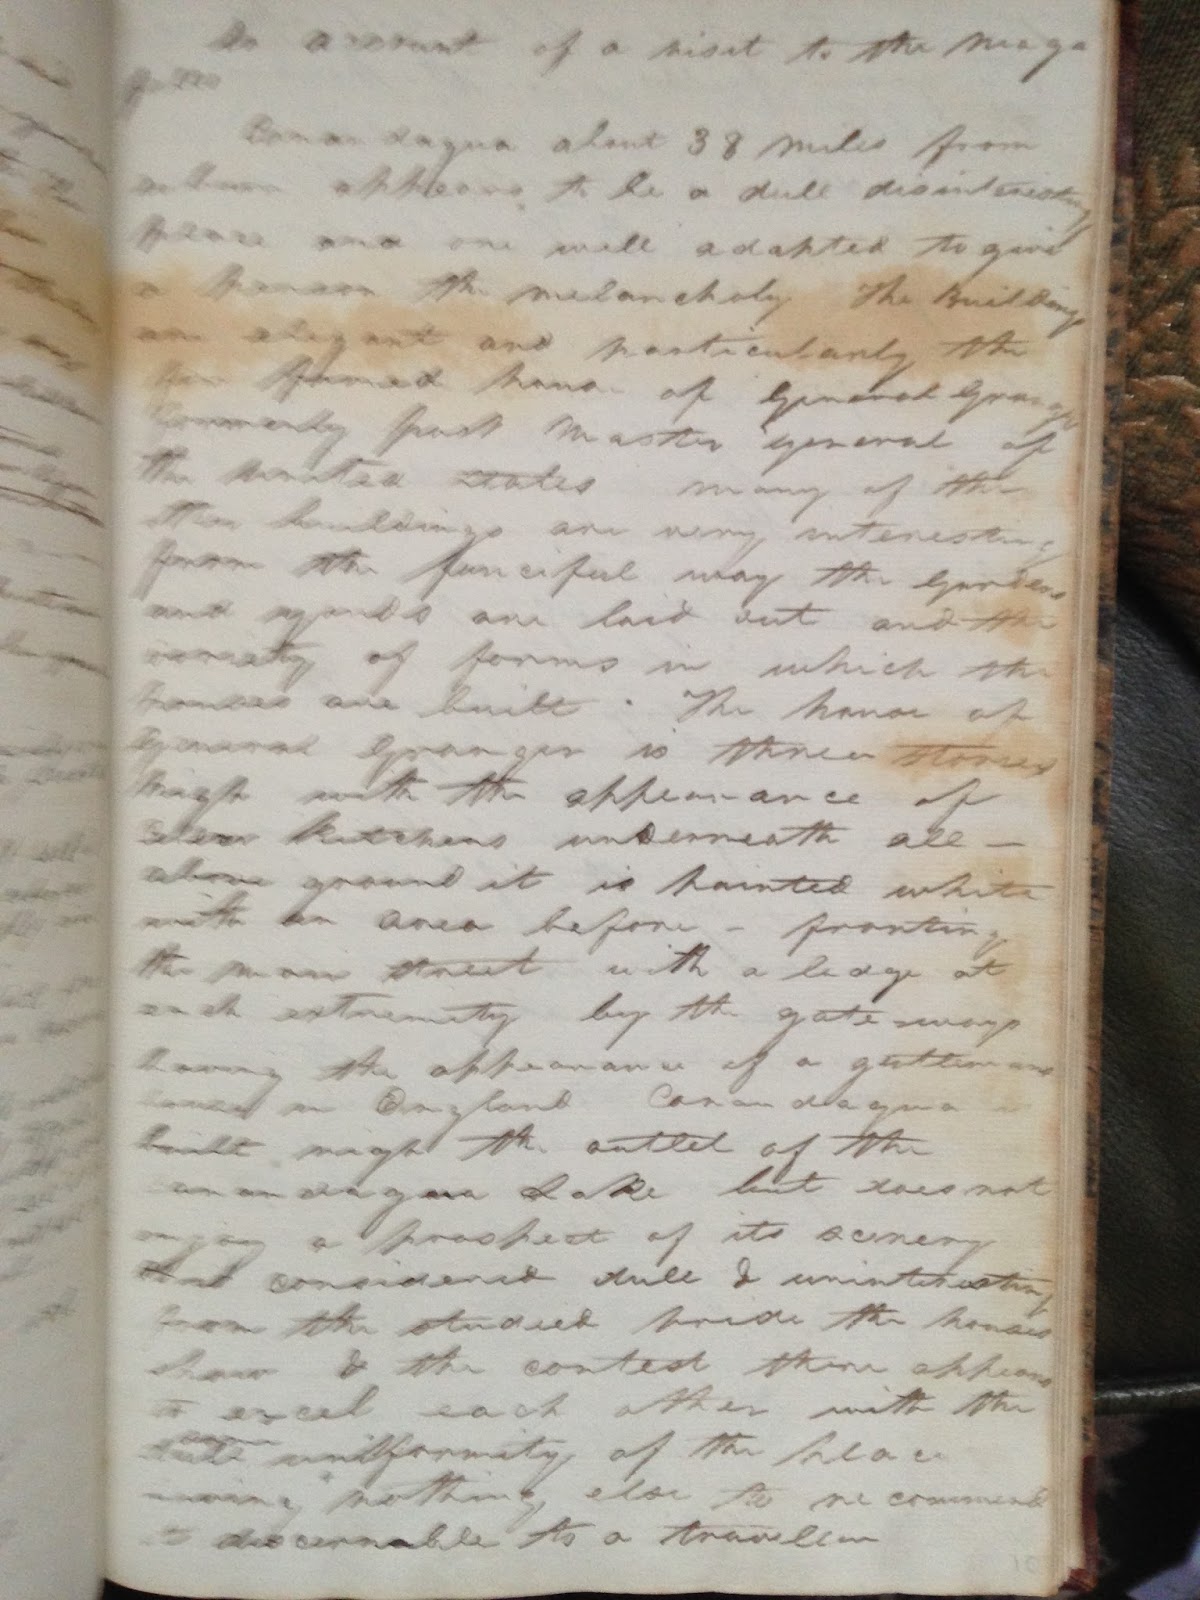 An account of a visit to the Niaga
falls
Canandaqua about 38 Miles from
auburn appears to be a dull disinteresting
place and one well adapted to give
a person the melancholy The Buildings
are elegant and particularly the
far famed house of General Grange
formerly post Master general of
the united states many of the
buildings are very interesting
from the fanciful way the Gardens
and yards are laid out and the
variety of forms in which the
houses are built . The house of
General Granger is three stories
high with the appearance of
Kitchens underneath all -
above ground it is painted white
with an area before - fronting
the main street with a ledge at
each extremity by the gate ways
having the appearance of a gentlemans
house in England Canandaqua
built nigh the outlet of the
anandaqua Lake but does not
enjoy a prospect of its scenery
considered dull & uninteresting
from the studied pride the houses
show & the contest there appears
to excel each other with the
uniformity of the place
nothing else to recommend
discernable to a traveller